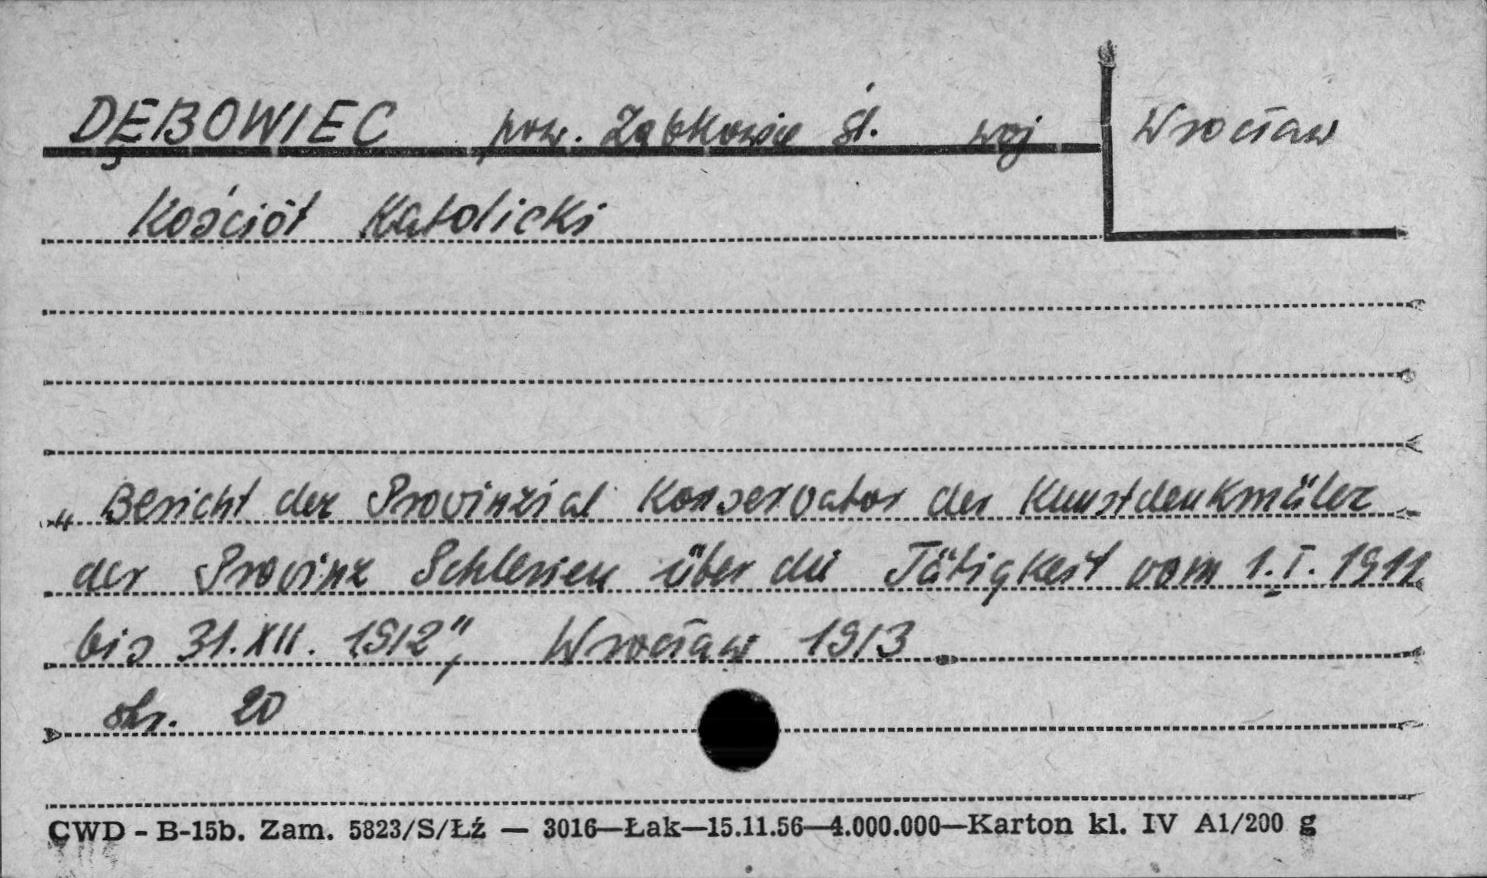 DĘBOWIEC pow. Ząbkowice Śl. woj Wrocław
Kościół Katolicki
„Bericht der Provinzial Konservator der Kunstdenkmäler
der Provinz Schlesien über die Tätigkeit vom 1.I.1911
bis 31.XII.1912", Wrocław 1913
str. 20
CWD - B-15b. Zam. 5823/S/Łź — 3016—Łak—15.11.56—4.000.000—Karton kl. IV A1/200 g